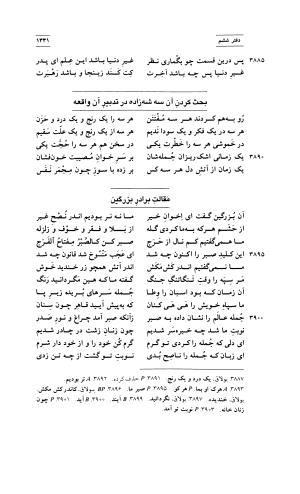 ۱۲۳۱
دفتر ششم
۳۸۸۵ پس درین قسمت چو بگماری نظر غیر دنیا باشد این علم ای پدر
غیر دنیا پس چه باشد آخرت کت کند زینجا و باشد رهبرت
بحث کردن آن سه شه‌زاده در تدبیر آن واقعه
رو به‌هم کردند هر سه مفتتن هر سه را یک رنج و یک درد و حزن
هر سه در یک فکر و یک سودا ندیم هر سه از یک رنج و یک علت سقیم
در خموشی هر سه را خطرت یکی در سخن هم هر سه را حجت یکی
۳۸۹۰ یک زمانی اشک‌ریزان جمله‌شان بر سر خوان مصیبت خون‌فشان
یک زمان از آتش دل هر سه کس بر زده با سوز چون مجمر نفس
مقالت برادر بزرگین
آن بزرگین گفت ای اخوان خیر ما نه نر بودیم اندر نصح غیر
از حشم هر که به‌ما کردی گله از بلا و فقر و خوف و زلزله
ما همی‌گفتیم کم نال از حرج صبر کن کالصبر مفتاح الفرج
۳۸۹۵ این کلید صبر را اکنون چه شد ای عجب منسوخ شد قانون چه شد
ما نمی‌گفتیم اندر کش مکش اندر آتش همچو زر خندید خوش
مر سپه را وقت تنگاتنگ جنگ گفته ما که هین مگردانید رنگ
آن زمان که بود اسبان را وطا جمله سرهای بریده زیر پا
ما سپاه خویش را هی هی کنان که به‌پیش آیید قاهر چون سنان
۳۹۰۰ جمله عالم را نشان داده به صبر زآنکه صبر آمد چراغ و نور صدر
نوبت ما شد چه خیره‌سر شدیم چون زنان زشت در چادر شدیم
ای دلی که جمله را کردی تو گرم گرم کن خود را و از خود دار شرم
ای زبان که جمله را ناصح بدی نوبت تو گشت از چه تن زدی